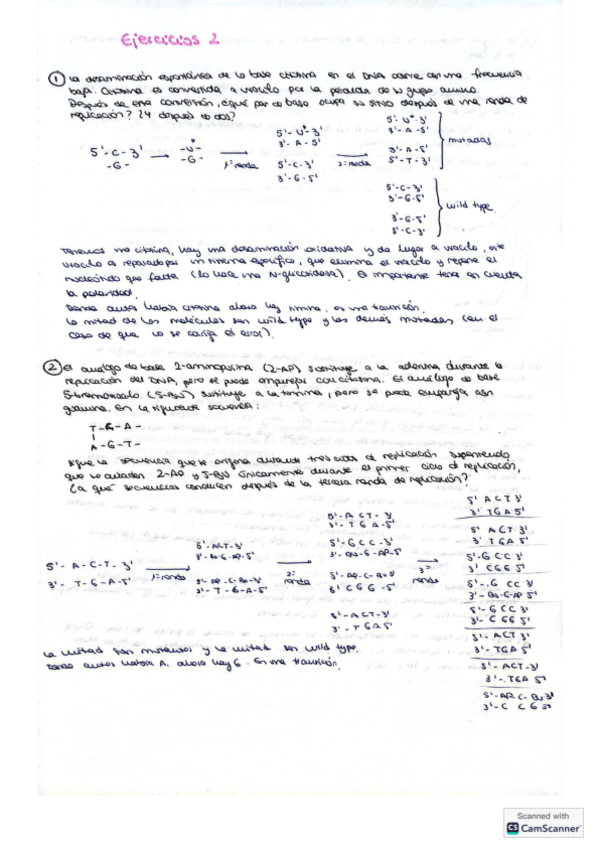 Ejercicios 2
① La desaminación espontánea de la base citosina en el DNA ocurre con una frecuencia
baja. Citosina es convertida a uracilo por la pérdida de su grupo amino.
Después de esta conversión, ¿qué par de base ocupa su sitio después de una ronda de
replicación? ¿Y después de dos?
5'-C-3'
-G-
-U*-
-G-
1ª ronda
5'-U*-3'
3'-A-5'
5'-C-3'
3'-G-5'
2ª ronda
5'-U*-3'
3'-A-5'
3'-A-5'
5'-T-3'
mutadas
5'-C-3'
3'-G-5'
3'-G-5'
5'-C-3'
wild type
Tenemos una citosina, hay una desaminación oxidativa y da lugar a uracilo, este
uracilo es reparado por un sistema específico, que elimina el uracilo y repone el
nucleótido que falta (lo hace una N-glucosidasa). Es importante tener en cuenta
la polaridad.
Donde antes había citosina ahora hay timina, es una transición.
La mitad de las moléculas son wild type y las demás mutadas (en el
caso de que no se corrija el error).
② El análogo de base 2-aminopurina (2-AP) sustituye a la adenina durante la
replicación del DNA, pero se puede emparejar con citosina. El análogo de base
5-bromouracilo (5-BU) sustituye a la timina, pero se puede emparejar con
guanina. En la siguiente secuencia:
T-G-A-
A-G-T-
Sigue la secuencia que se origina durante tres ciclos de replicación suponiendo
que se añaden 2-AP y 5-BU únicamente durante el primer ciclo de replicación,
¿a qué secuencias conducen después de la tercera ronda de replicación?
5'-A-C-T-3'
3'-T-G-A-5'
1ª ronda
5'-ACT-3'
3'-Bu-G-AP-5'
5'-AP-C-Bu-3'
3'-T-G-A-5'
2ª
ronda
5'-A CT-3'
3'-T G A-5'
5'-G C C-3'
3'-Bu-G-AP-5'
5'-AP-C-Bu-3'
3' C G G -5'
5'-ACT-3'
3'-TGA 5'
3ª
ronda
5' A C T 3'
3' T G A 5'
5' A C T 3'
3' T G A 5'
5'-G C C 3'
3' C G G 5'
5'-G C C 3'
3'-Bu-G-AP 5'
5'-G C C 3'
3'-C G G 5'
5'-ACT 3'
3'-TGA 5'
5'-ACT-3'
3'-TGA 5'
5'-AP C-Bu 3'
3'-C C G 5'
La mitad son mutantes y la mitad son wild type.
Donde antes había A, ahora hay G. Es una transición.
Scanned with
CS CamScanner